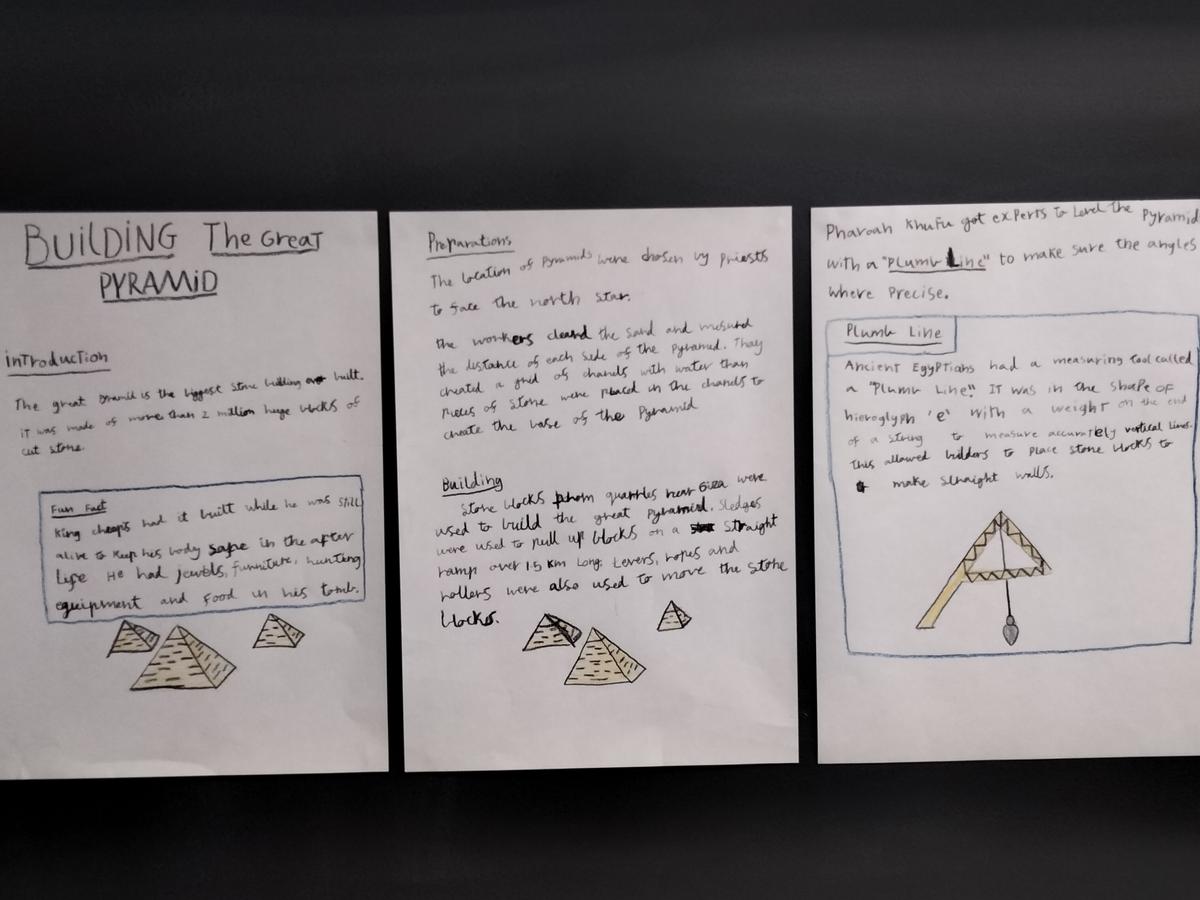 BUiLDiNG The Great
PYRAMiD
inTRoduction
The great pyramid is the biggest stone building ever built.
it was made of more than 2 million huge blocks of
cut stone.
Fun Fact
King cheops had it built while he was still
alive to keep his body safe in the after
life He had jewels, furniture, hunting
equipment and food in his tomb.
Preparations
The location of pyramids were chosen by priests
to face the north star.
the workers cleard the sand and mesured
the distance of each side of the pyramid. They
created a grid of chanels with water than
pieces of stone were placed in the chanels to
create the base of the Pyramid
Building
Stone blocks phom quarries near Giza were
used to build the great pyramid. Sledges
were used to pull up blocks on a straight
ramp over 1.5 Km long. Levers, ropes and
rollers were also used to move the stone
blocks.
Pharoah Khufu got experts to level the Pyramid
with a "Plumb Line" to make sure the angles
where Precise.
Plumb Line
Ancient Egyptians had a measuring tool called
a "Plumb Line". It was in the shape of
hieroglyph 'e' with a weight on the end
of a string to measure accurately vertical lines.
This allowed builders to place stone blocks to
make straight walls.